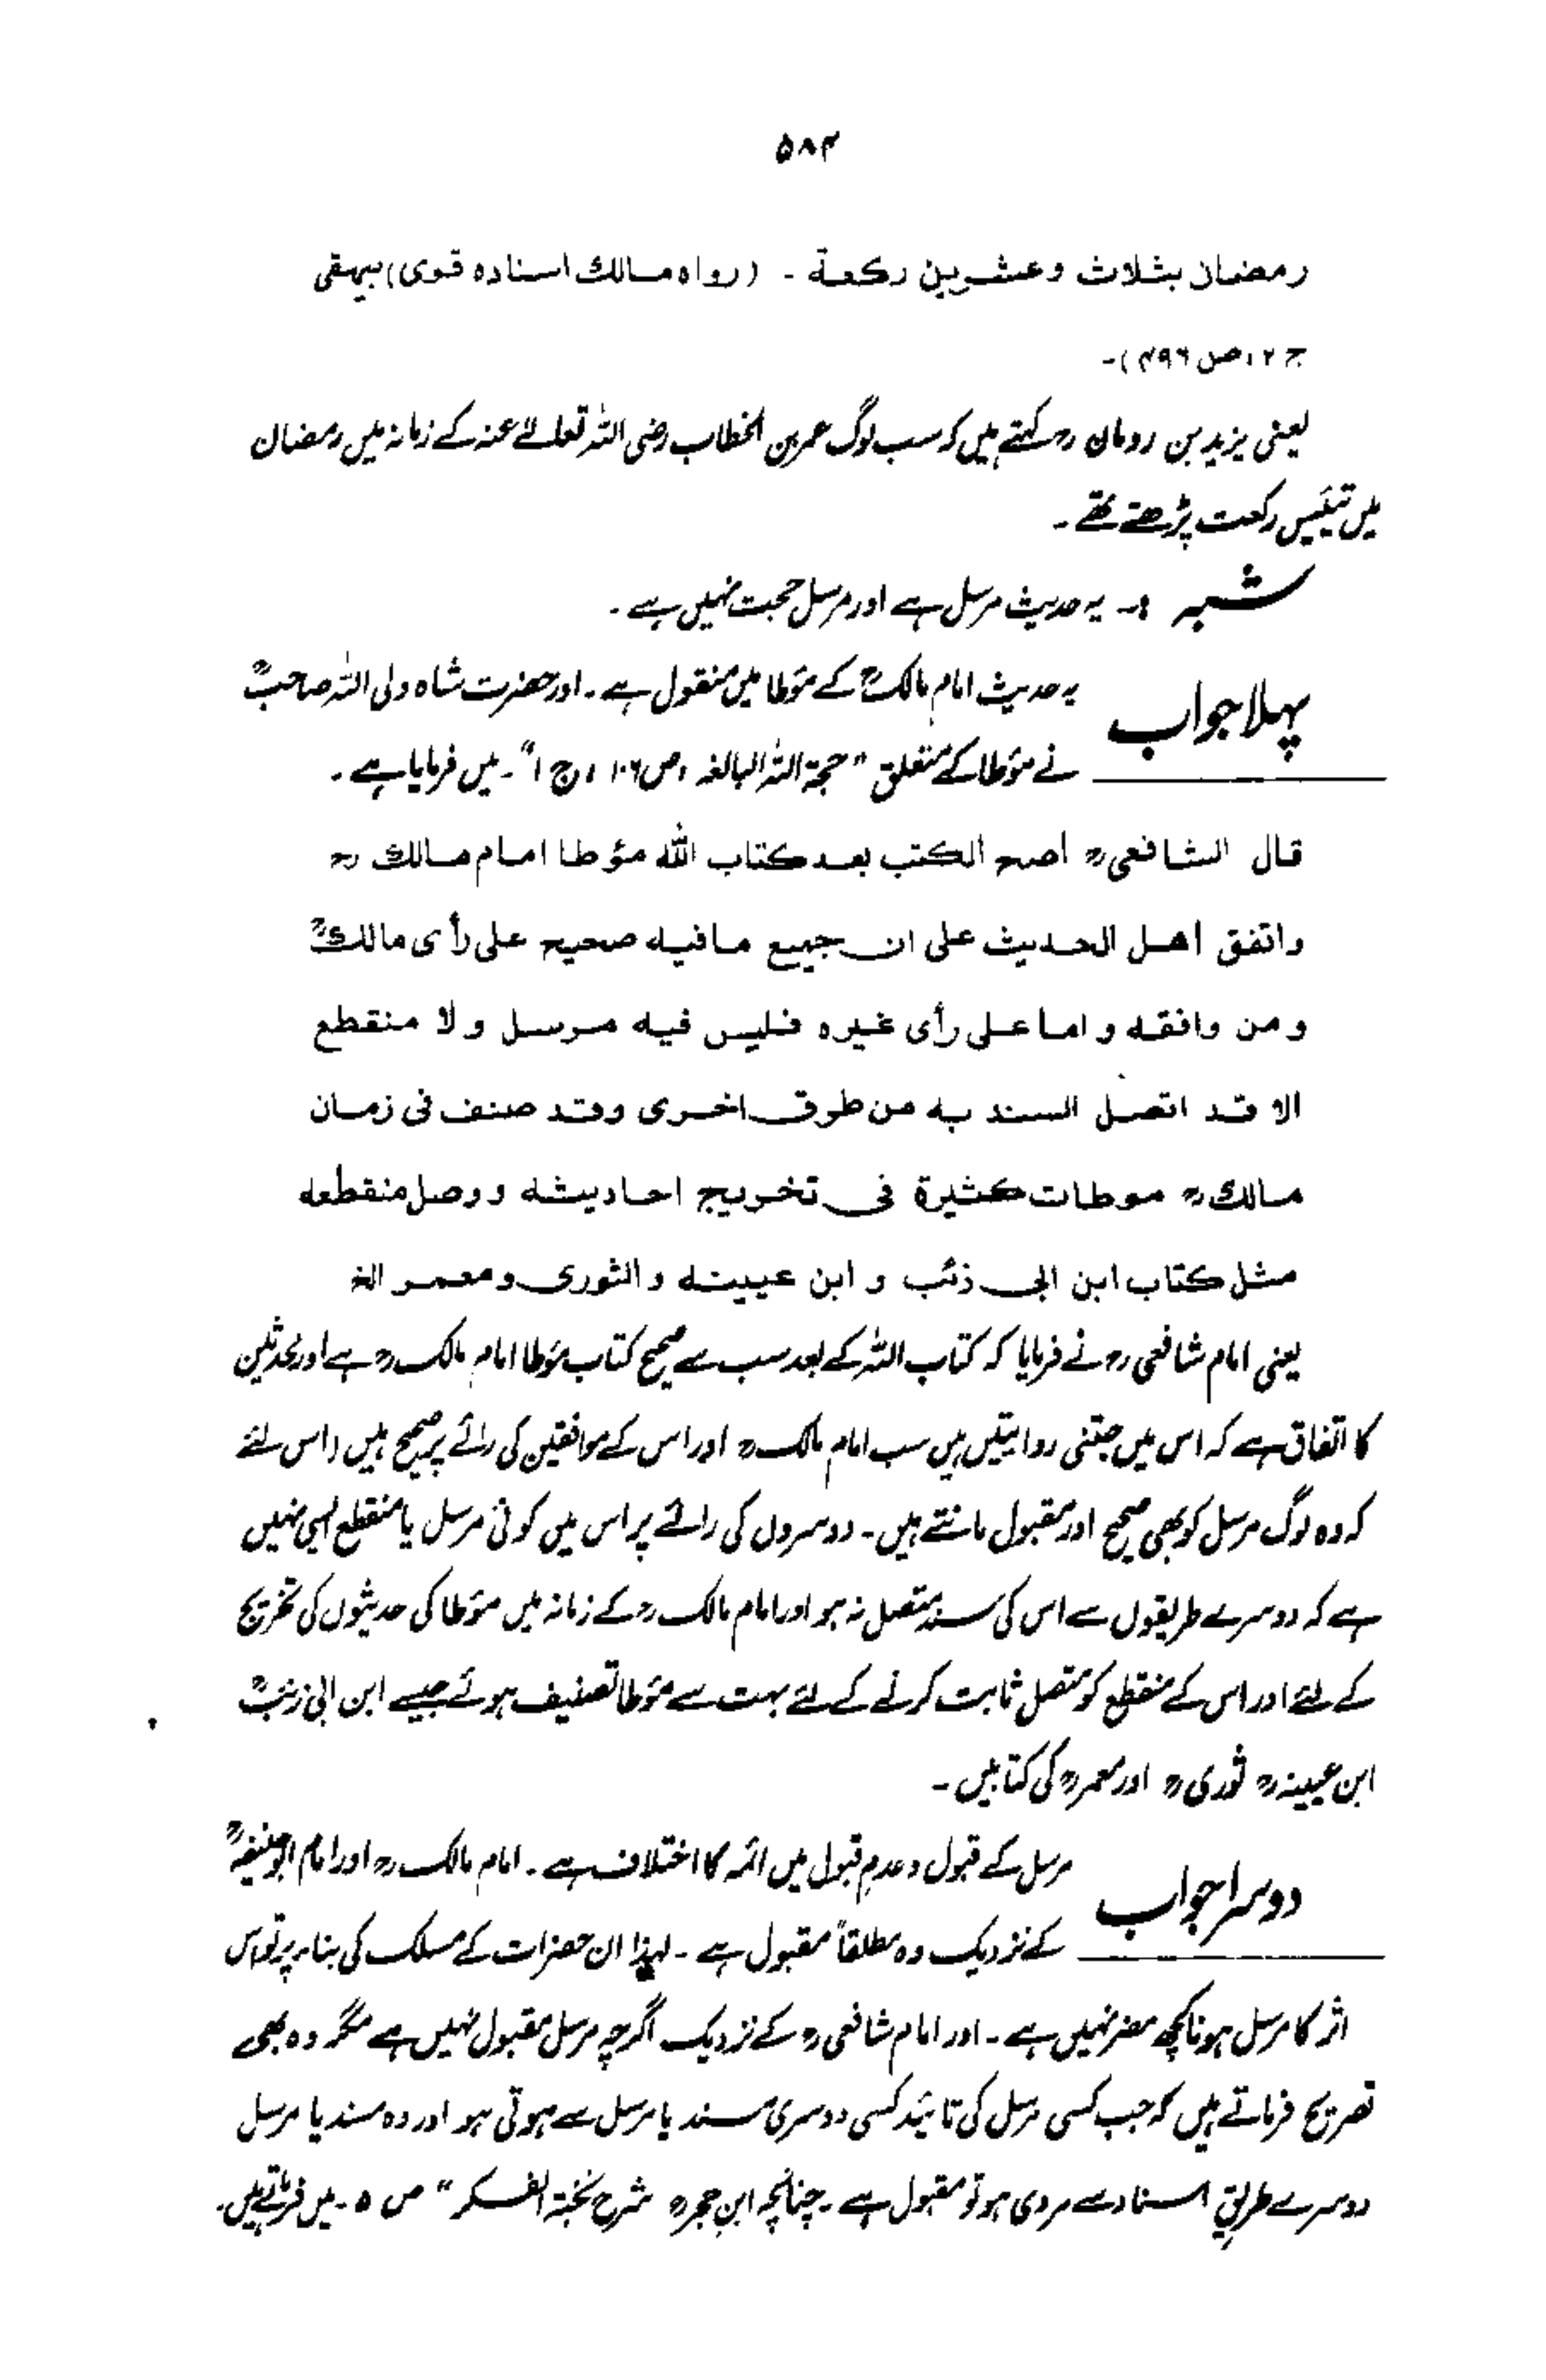 ۵۸۴
رمضان بثلاث وعشرين ركعة ۔ (رواه مالك اسناده قوى) بيهقى
ج ۲، ص ۴۹۶)۔
یعنی یزید بن رومانؒ کہتے ہیں کہ سب لوگ عمر بن الخطاب رضی اللہ تعالےٰ عنہ کے زمانہ میں رمضان
میں تیئیس رکعت پڑھتے تھے ۔
شبہ :۔ یہ حدیث مرسل ہے اور مرسل حجت نہیں ہے ۔
پہلا جواب یہ حدیث امام مالکؒ کے مؤطا میں منقول ہے ۔ اور حضرت شاہ ولی اللہ صاحبؒ
نے مؤطا کے متعلق "حجۃ اللہ البالغہ ، ص ۱۰۶ ، ج ۱" ۔ میں فرمایا ہے ۔
قال الشافعىؒ اصح الكتب بعد كتاب الله مؤطا امام مالكؒ
واتفق اهل الحديث على ان جميع مافيه صحيح على رأى مالكؒ
ومن وافقه واما على رأى غيره فليس فيه مرسل ولا منقطع
الا قد اتصل السند به من طرق اخرى وقد صنف فى زمان
مالكؒ موطات كثيرة فى تخريج احاديثه ووصل منقطعه
مثل كتاب ابن ابى ذئب وابن عيينه والثورى ومعمر الخ
یعنی امام شافعیؒ نے فرمایا کہ کتاب اللہ کے بعد سب سے صحیح کتاب مؤطا امام مالکؒ ہے اور محدثین
کا اتفاق ہے کہ اس میں جتنی روایتیں ہیں سب امام مالکؒ اور اس کے موافقین کی رائے پر صحیح ہیں (اس لئے
کہ وہ لوگ مرسل کو بھی صحیح اور مقبول مانتے ہیں ۔ دوسروں کی رائے پر اس میں کوئی مرسل یا منقطع ایسی نہیں
ہے کہ دوسرے طریقوں سے اس کی سند متصل نہ ہو اور امام مالکؒ کے زمانہ میں مؤطا کی حدیثوں کی تخریج
کے لئے اور اس کے منقطع کو متصل ثابت کرنے کے لئے بہت سے مؤطا تصنیف ہوئے جیسے ابن ابی ذئبؒ
ابن عیینہؒ ثوریؒ اور معمرؒ کی کتابیں ۔
دوسرا جواب مرسل کے قبول و عدم قبول میں ائمہ کا اختلاف ہے ۔ امام مالکؒ اور امام ابوحنیفہؒ
کے نزدیک وہ مطلقاً مقبول ہے ۔ لہٰذا ان حضرات کے مسلک کی بناء پر تو اس
اثر کا مرسل ہونا کچھ مضر نہیں ہے ۔ اور امام شافعیؒ کے نزدیک اگرچہ مرسل مقبول نہیں ہے مگر وہ بھی
تصریح فرماتے ہیں کہ جب کسی مرسل کی تائید کسی دوسری مسند یا مرسل سے ہوتی ہو اور وہ مسند یا مرسل
دوسرے طریق اسناد سے مروی ہو تو مقبول ہے ۔ چنانچہ ابن حجرؒ شرح نخبۃ الفکر" ص ۵ ۔ میں فرماتے ہیں ۔